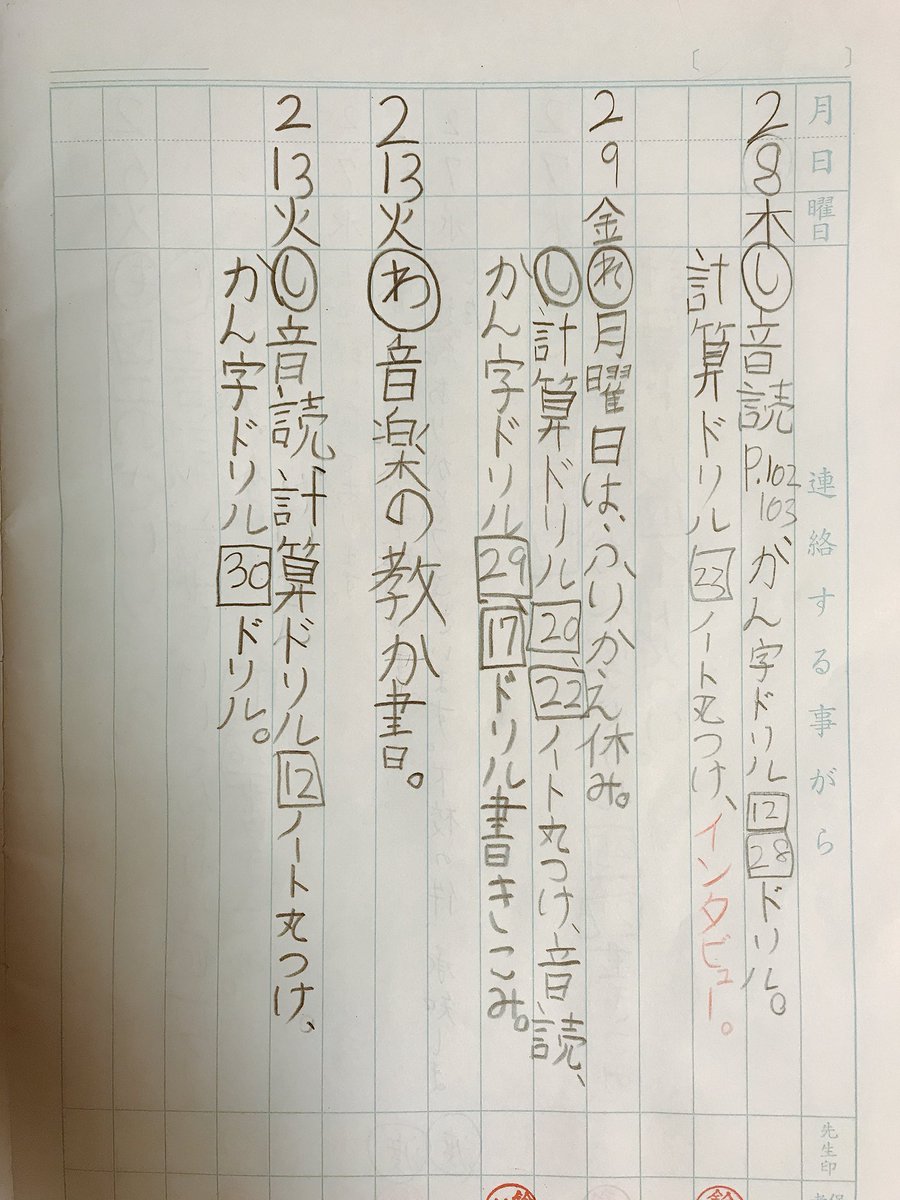 月 日 曜日 連絡する事がら 先生印
2 8 木 し 音読 P.102 103 かん字ドリル 12 28 ドリル。
計算ドリル 23 ノート丸つけ、インタビュー。
2 9 金 れ 月曜日は、ふりかえ休み。
し 計算ドリル 20、22 ノート丸つけ、音読、
かん字ドリル 29、17 ドリル書きこみ。
2 13 火 わ 音楽の教か書。
2 13 火 し 音読 計算ドリル 12 ノート丸つけ、
かん字ドリル 30 ドリル。